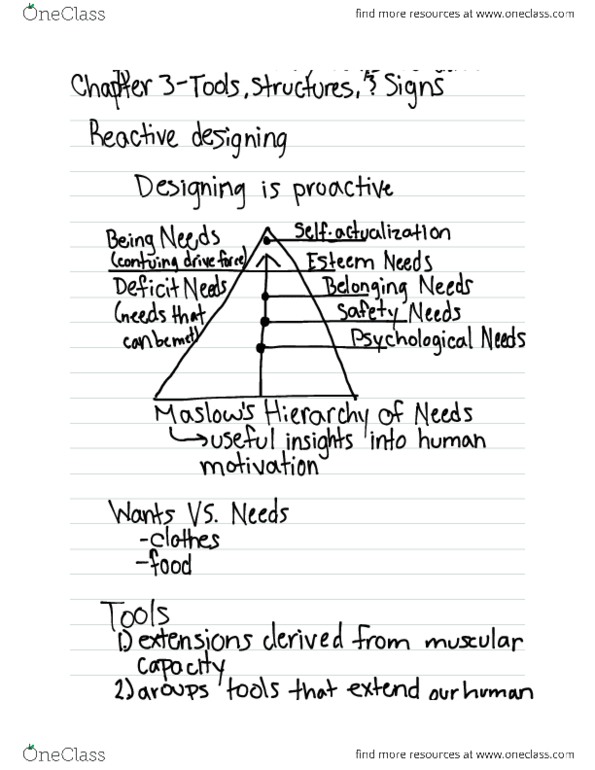 OneClass
find more resources at www.oneclass.com
Chapter 3-Tools, Structures, & Signs
Reactive designing
Designing is proactive
Being Needs
(contuing drive force)
Deficit Needs
(needs that
can be met)
Self-actualization
Esteem Needs
Belonging Needs
Safety Needs
Psychological Needs
Maslow's Hierarchy of Needs
→useful insights into human
motivation
Wants VS. Needs
-clothes
-food
Tools
1) extensions derived from muscular
capacity
2) groups tools that extend our human
OneClass
find more resources at www.oneclass.com